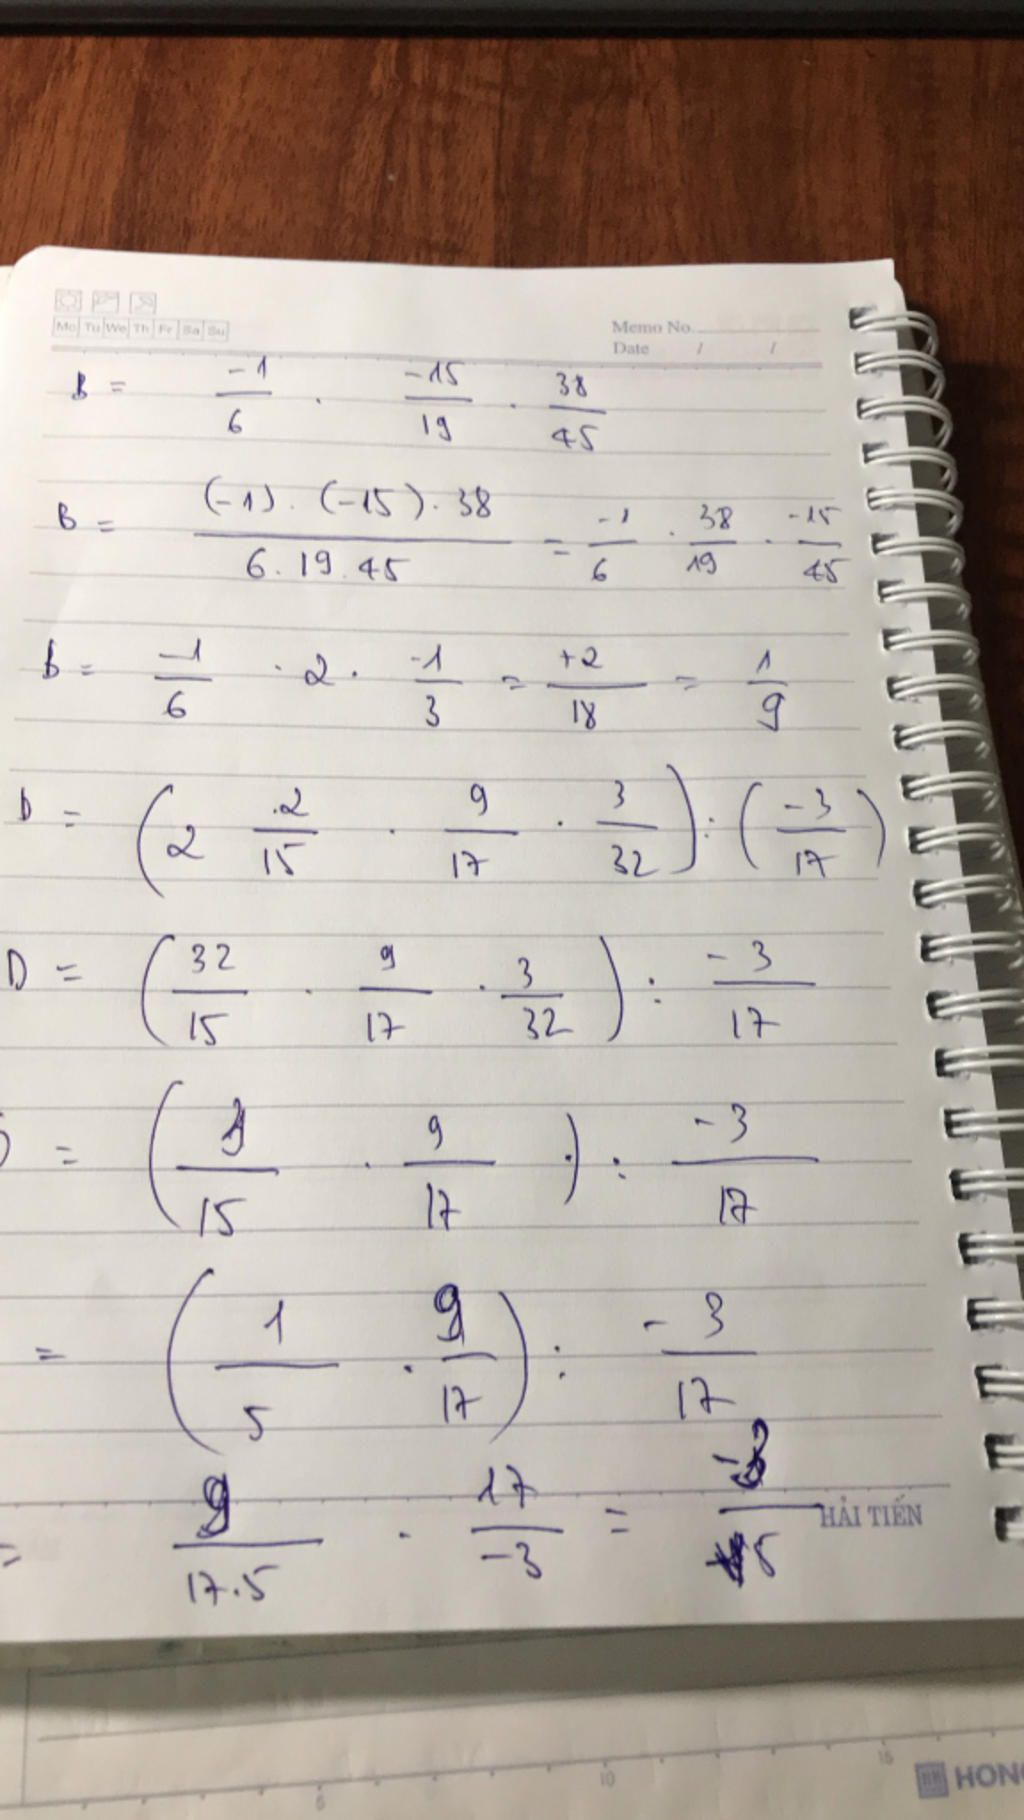 Mo Tu We Th Fr Sa Su
Memo No.
Date / /
B = -1/6 . -15/19 . 38/45
B = (-1) . (-15) . 38 / 6 . 19 . 45 = -1/6 . 38/19 . -15/45
B = -1/6 . 2 . -1/3 = +2/18 = 1/9
D = (2 2/15 . 9/17 . 3/32) : (-3/17)
D = (32/15 . 9/17 . 3/32) : -3/17
= (3/15 . 9/17 .) : -3/17
= (1/5 . 9/17) : -3/17
= 9/17.5 . 17/-3 = -3/5
HẢI TIẾN
10
15
HON